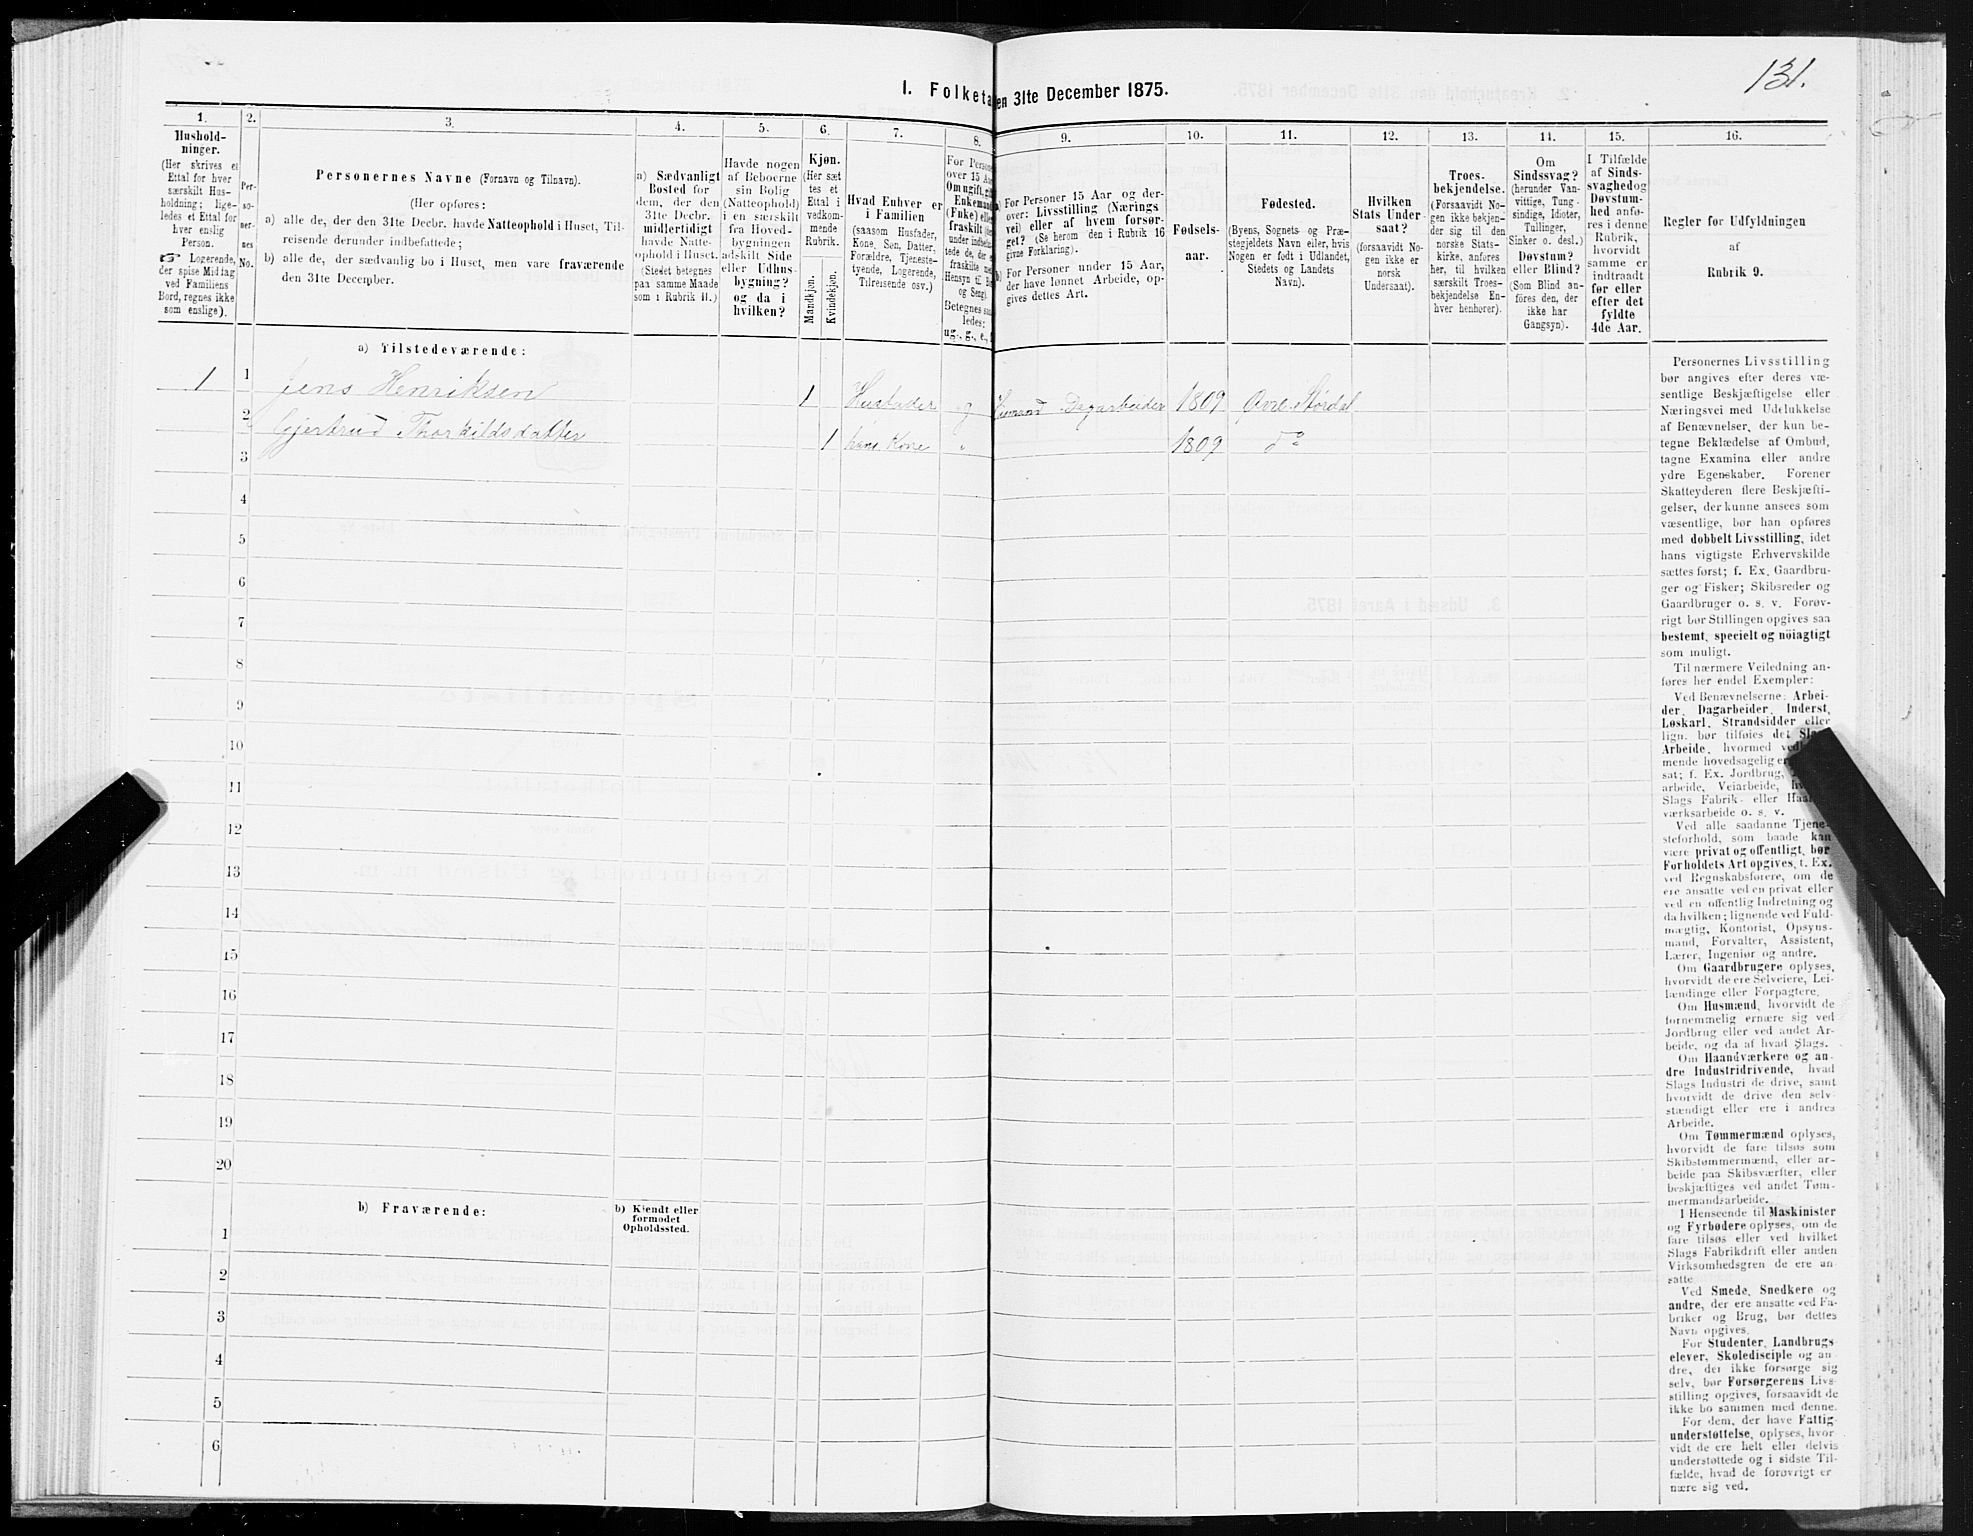 131.
I. Folketa en 31te December 1875.
1. 2. 3. 4. 5. 6. 7. 8. 9. 10. 11. 12. 13. 14. 15. 16.
Hushold-
ninger.
(Her skrives et
Ettal for hver
særskilt Hus-
holdning; lige-
ledes et Ettal for
hver enslig
Person.
☞ Logerende,
der spise Middag
ved Familiens
Bord, regnes ikke
som enslige).
Per-
so-
ner-
nes
No.
Personernes Navne (Fornavn og Tilnavn).
(Her opføres:
a) alle de, der den 31te Decbr. havde Natteophold i Huset, Til-
reisende derunder indbefattede;
b) alle de, der sædvanlig bo i Huset, men vare fraværende
den 31te December.
a) Sædvanligt
Bosted for
dem, der den
31te Decbr.
midlertidigt
havde Natte-
ophold i Huset.
(Stedet betegnes
paa samme Maade
som i Rubrik 11.)
Havde nogen
af Beboerne
sin Bolig
(Natteophold)
i en særskilt
fra Hoved-
bygningen
adskilt Side
eller Udhus-
bygning?
og da i
hvilken?
Kjøn.
(Her sæt
tes et
Ettal i
vedkom-
mende
Rubrik.
Mandkjøn.
Kvindekjøn.
Hvad Enhver er
i Familien
(saasom Husfader,
Kone, Søn, Datter,
Forældre, Tjeneste-
tyende, Logerende,
Tilreisende osv.)
For Person
over 15 Aa
Om ugift, gif
Enkemand
(Enke) elle
fraskilt (de
under indbefa
tede de, der e
fraskilte me
Hensyn til Bo
og Seng).
Betegnes saa
ledes:
ug., g., e., f
a) For Personer 15 Aar og der-
over: Livsstilling (Nærings
vei) eller af hvem forsør-
get? (Se herom den i Rubrik 16
givne Forklaring).
b) For Personer under 15 Aar,
der have lønnet Arbeide, op-
gives dettes Art.
Fødsels-
aar.
Fødested.
(Byens, Sognets og Præ-
stegjeldets Navn eller, hvis
Nogen er født i Udlandet,
Stedets og Landets
Navn).
Hvilken
Stats Under-
saat?
(forsaavidt No-
gen ikke er
norsk
Undersaat).
Troes-
bekjendelse.
(Forsaavidt No-
gen ikke bekjen-
der sig til den
norske Stats-
kirke, anføres
her, til hvilken
særskilt Troes-
bekjendelse En-
hver henhører).
Om
Sindssvag?
(herunder Van-
vittige, Tung-
sindige, Idioter,
Sinker o. desl.)
Døvstum?
eller Blind?
(Som Blind an-
føres den, der
ikke har
Gangsyn).
I Tilfælde
af Sinds-
svaghedog
Døvstum-
hed anfø-
res i denne
Rubrik,
hvorvidt
samme er
indtraadt
før eller
efter det
fyldte
4de Aar.
Regler for Udfyldningen
af
Rubrik 9.
a) Tilstedeværende:
1 1 Jens Henriksen 1 Husfader g Husmand Dagarbeider 1809 Øvre Størdal
2 Gjertrud Thorkildsdatter 1 hans Kone " 1809 do
3
4
5
6
7
8
9
10
11
12
13
14
15
16
17
18
19
20
b) Fraværende:
b) Kjendt eller
formodet
Opholdssted.
1
2
3
4
5
6
Personernes Livsstilling
bør angives efter deres væ-
sentlige Beskjæftigelse eller
Næringsvei med Udelukkelse
af Benævnelser, der kun be-
tegne Beklædelse af Ombud,
tagne Examina eller andre
ydre Egenskaber. Forener
Skatteyderen flere Beskjæfti-
gelser, der kunne ansees som
væsentlige, bør han opføres
med dobbelt Livsstilling, idet
hans vigtigste Erhvervskilde
sættes først; f. Ex. Gaardbru-
ger og Fisker; Skibsreder og
Gaardbruger o. s. v. Forøv-
rigt bør Stillingen opgives saa
bestemt, specielt og nöiagtigt
som muligt.
Til nærmere Veiledning an-
føres her endel Exempler:
Ved Benævnelserne: Arbei-
der, Dagarbeider, Inderst,
Løskarl, Strandsidder eller
lign. bør tilføies det Slags
Arbeide, hvormed ved
mende hovedsagelig er
sat; f. Ex. Jordbrug,
arbeide, Veiarbeide,
Slags Fabrik- eller Haa
værksarbeide o. s. v.
Ved alle saadanne Tjene-
steforhold, som baade kan
være privat og offentligt, bør
Forholdets Art opgives, f. Ex.
ved Regnskabsførere, om de
ere ansatte ved en privat eller
ved en offentlig Indretning og
da hvilken; lignende ved Fuld-
mægtig, Kontorist, Opsyns-
mand, Forvalter, Assistent,
Lærer, Ingeniør og andre.
Om Gaardbrugere oplyses,
hvorvidt de ere Selveiere, Lei-
lændinge eller Forpagtere.
Om Husmænd, hvorvidt de
fornemmelig ernære sig ved
Jordbrug eller ved andet Ar-
beide, og da af hvad Slags.
Om Haandværkere og an-
dre Industridrivende, hvad
Slags Industri de drive, samt
hvorvidt de drive den selv-
stændigt eller ere i andres
Arbeide.
Om Tømmermænd oplyses,
hvorvidt de fare tilsøs som
Skibstømmermænd, eller ar-
beide paa Skibsværfter, eller
beskjæftiges ved andet Tøm-
mermandsarbeide.
I Henseende til Maskinister
og Fyrbødere oplyses, om de
fare tilsøs eller ved hvilket
Slags Fabrikdrift eller anden
Virksomhedsgren de ere an-
satte
Ved Smede, Snedkere og
andre, der ere ansatte ved Fa-
briker og Brug, bør dettes
Navn opgives.
For Studenter, Landbrugs-
elever, Skoledisciple og an-
dre, der ikke forsørge sig
selv, bør Forsørgerens Livs-
stilling opgives, forsaavidt de
ikke bo sammen med denne.
For dem, der have Fattig-
understøttelse, oplyses, hvor-
vidt de ere helt eller delvis
understøttede og i sidste Til-
fælde, hvad de forøvrigt er
nære sig ved.